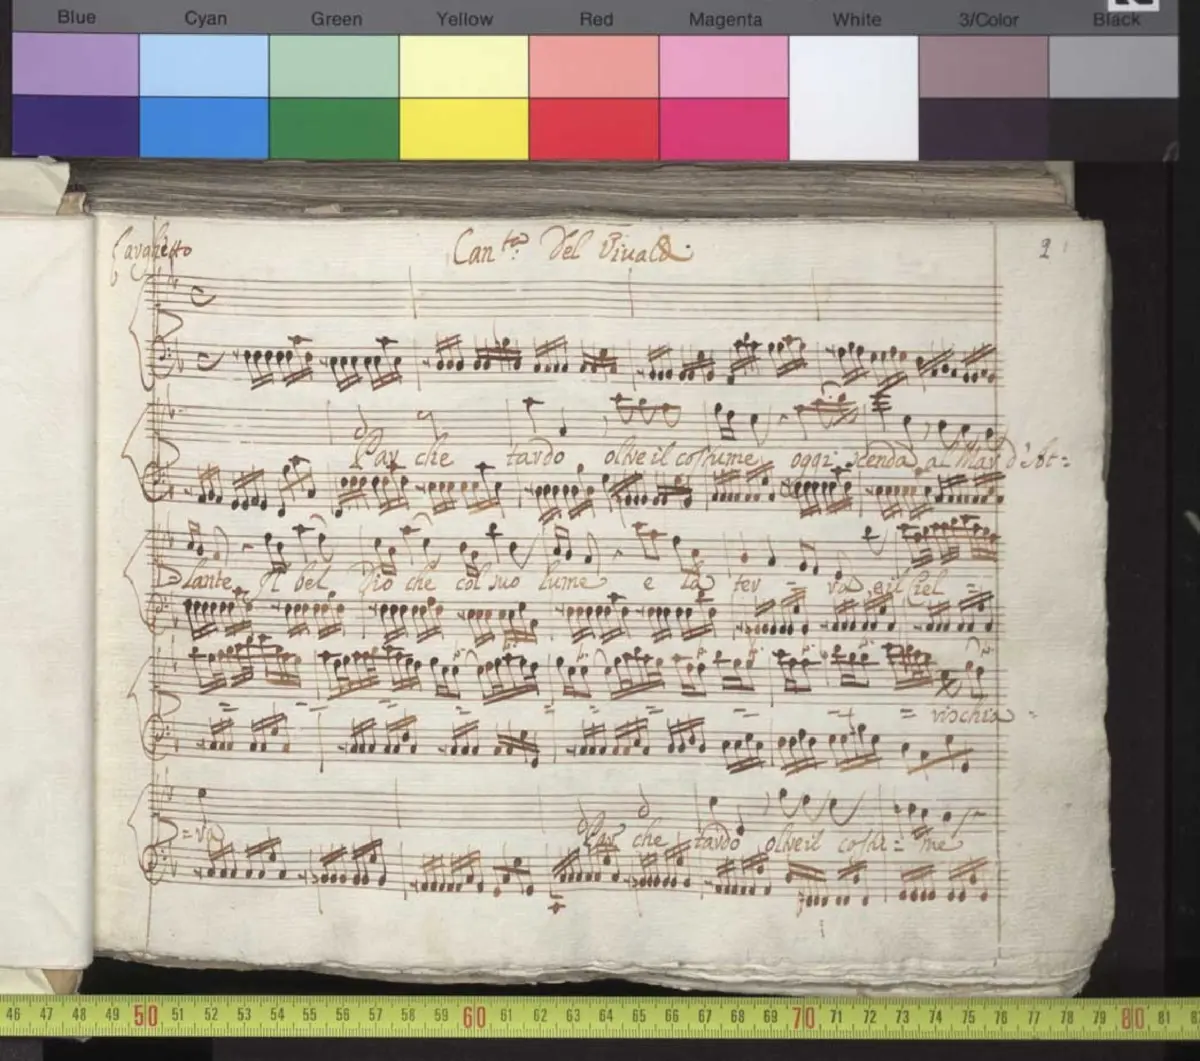 Blue Cyan Green Yellow Red Magenta White 3/Color Black
Larghetto Can.ta Del Viuald. 2
Par che tardo oltre il costume oggi scenda al Mar d'At=
=lante Il bel Dio che col suo lume e la ter - ra, e il Ciel =
= = = = = = = = vischia =
= va Par che tardo oltre il costu = me
46 47 48 49 50 51 52 53 54 55 56 57 58 59 60 61 62 63 64 65 66 67 68 69 70 71 72 73 74 75 76 77 78 79 80 81 8